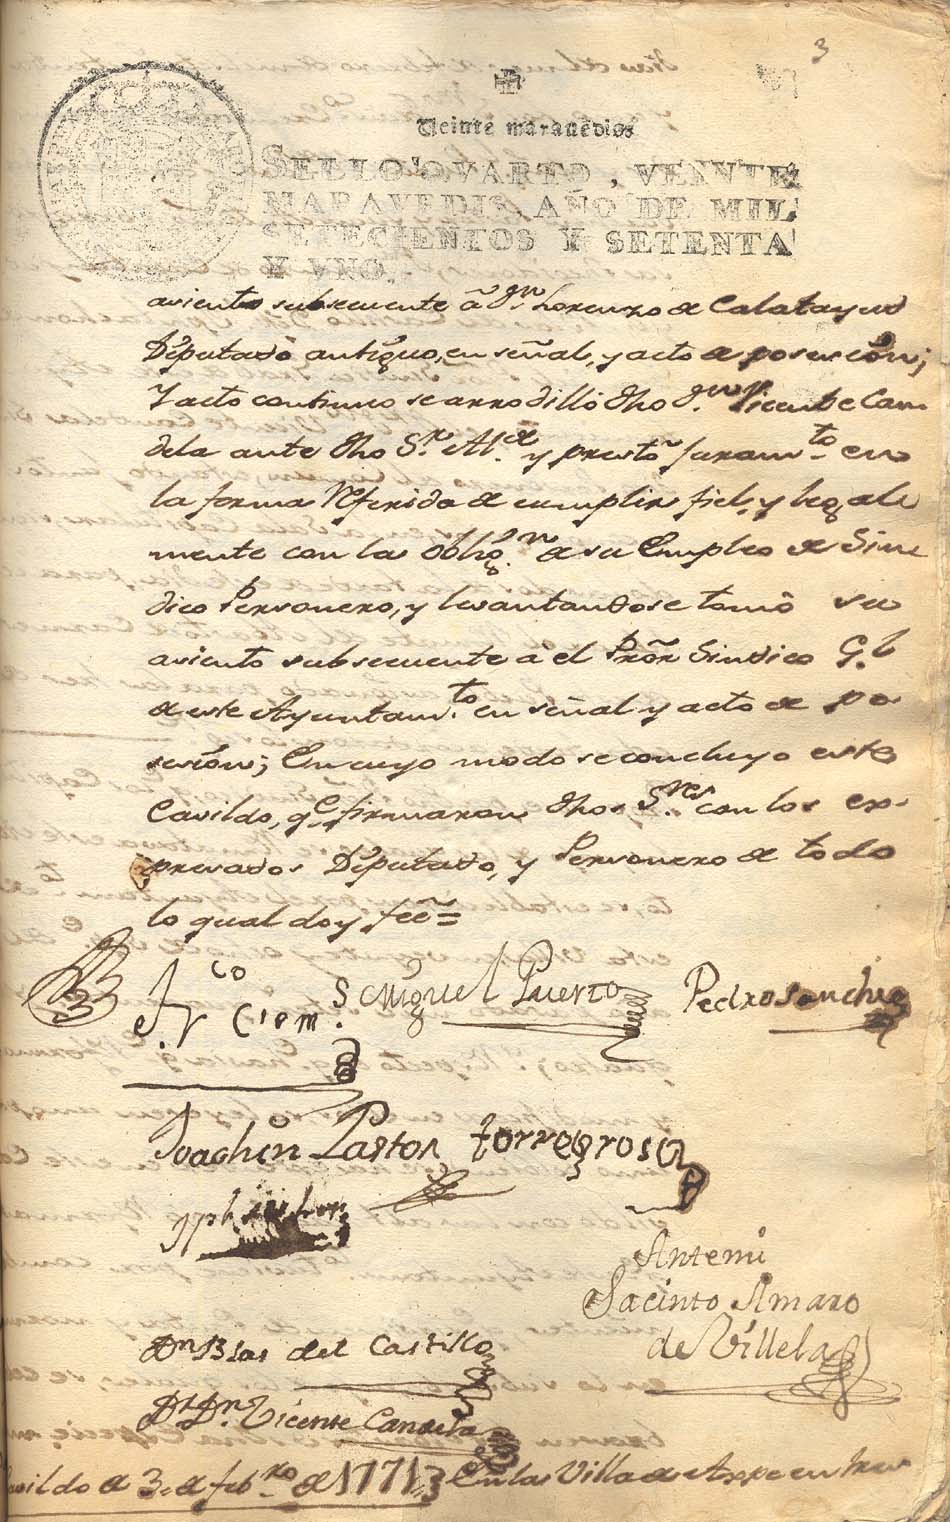 3
Veinte maravedis
SELLO QVARTO, VEINTE
MARAVEDIS, AÑO DE MIL
SETECIENTOS Y SETENTA
Y VNO.
asiento subsecuente â Dn. Lorenzo de Calatayud
Diputado antiguo, en señal, y acto de posesión;
Y acto continuo se arrodilló dho Dn. Vicente Can
dela ante dho Sr. Ale y prestó Juramto en
la forma referida de cumplir fiel, y legal
mente con la oblign de su Empleo de Sin
dico Personero, y levantandose tomó su
asiento subsecuente à el Prõr Sindico Gl
de este Ayuntamto en señal y acto de po
sesión; En cuyo modo se concluyo este
Cavildo, qe firmaron dhos Sres con los ex
presados Diputado, y Personero de todo
lo qual doy feê =
Miguel Puerto Pedro Sanchiz
Joachin Pastor torregrosa
Jph
Antemi
Jacinto Amaro
de Villela
Dn Blas del Castillo
Dr. Dn. Vicente Candela
Cavildo de 3 de febro de 1771 } En la Villa de Aspe en tres